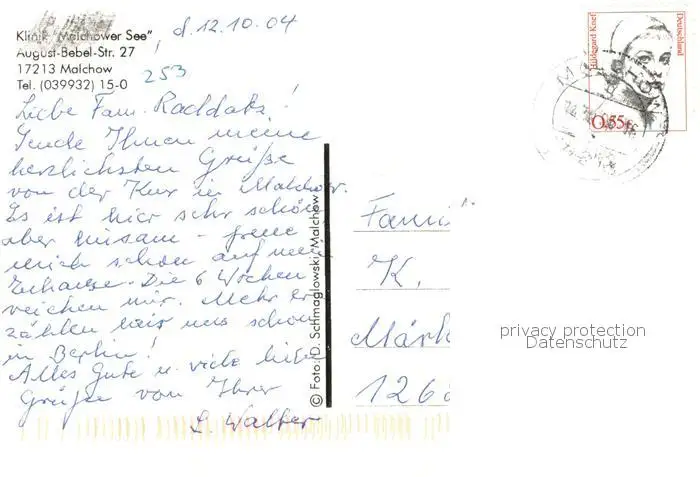 Klinik "Malchower See"
August-Bebel-Str. 27
17213 Malchow
Tel. (039932) 15-0
d. 12.10.04
253
Liebe Fam. Raddatz!
Sende Ihnen meine
herzlichsten Grüße
von der Kur in Malchow.
Es ist hier sehr schön
aber einsam - freue
mich schon auf mein
Zuhause. Die 6 Wochen
reichen mir. Mehr er-
zählen wir uns schon
in Berlin!
Alles Gute u. viele liebe
Grüße von Ihrer
L. Walter
© Foto: D. Schmaglowski, Malchow
Hildegard Knef
Deutschland
0,55€
Famil
K.
Märk
126
privacy protection
Datenschutz